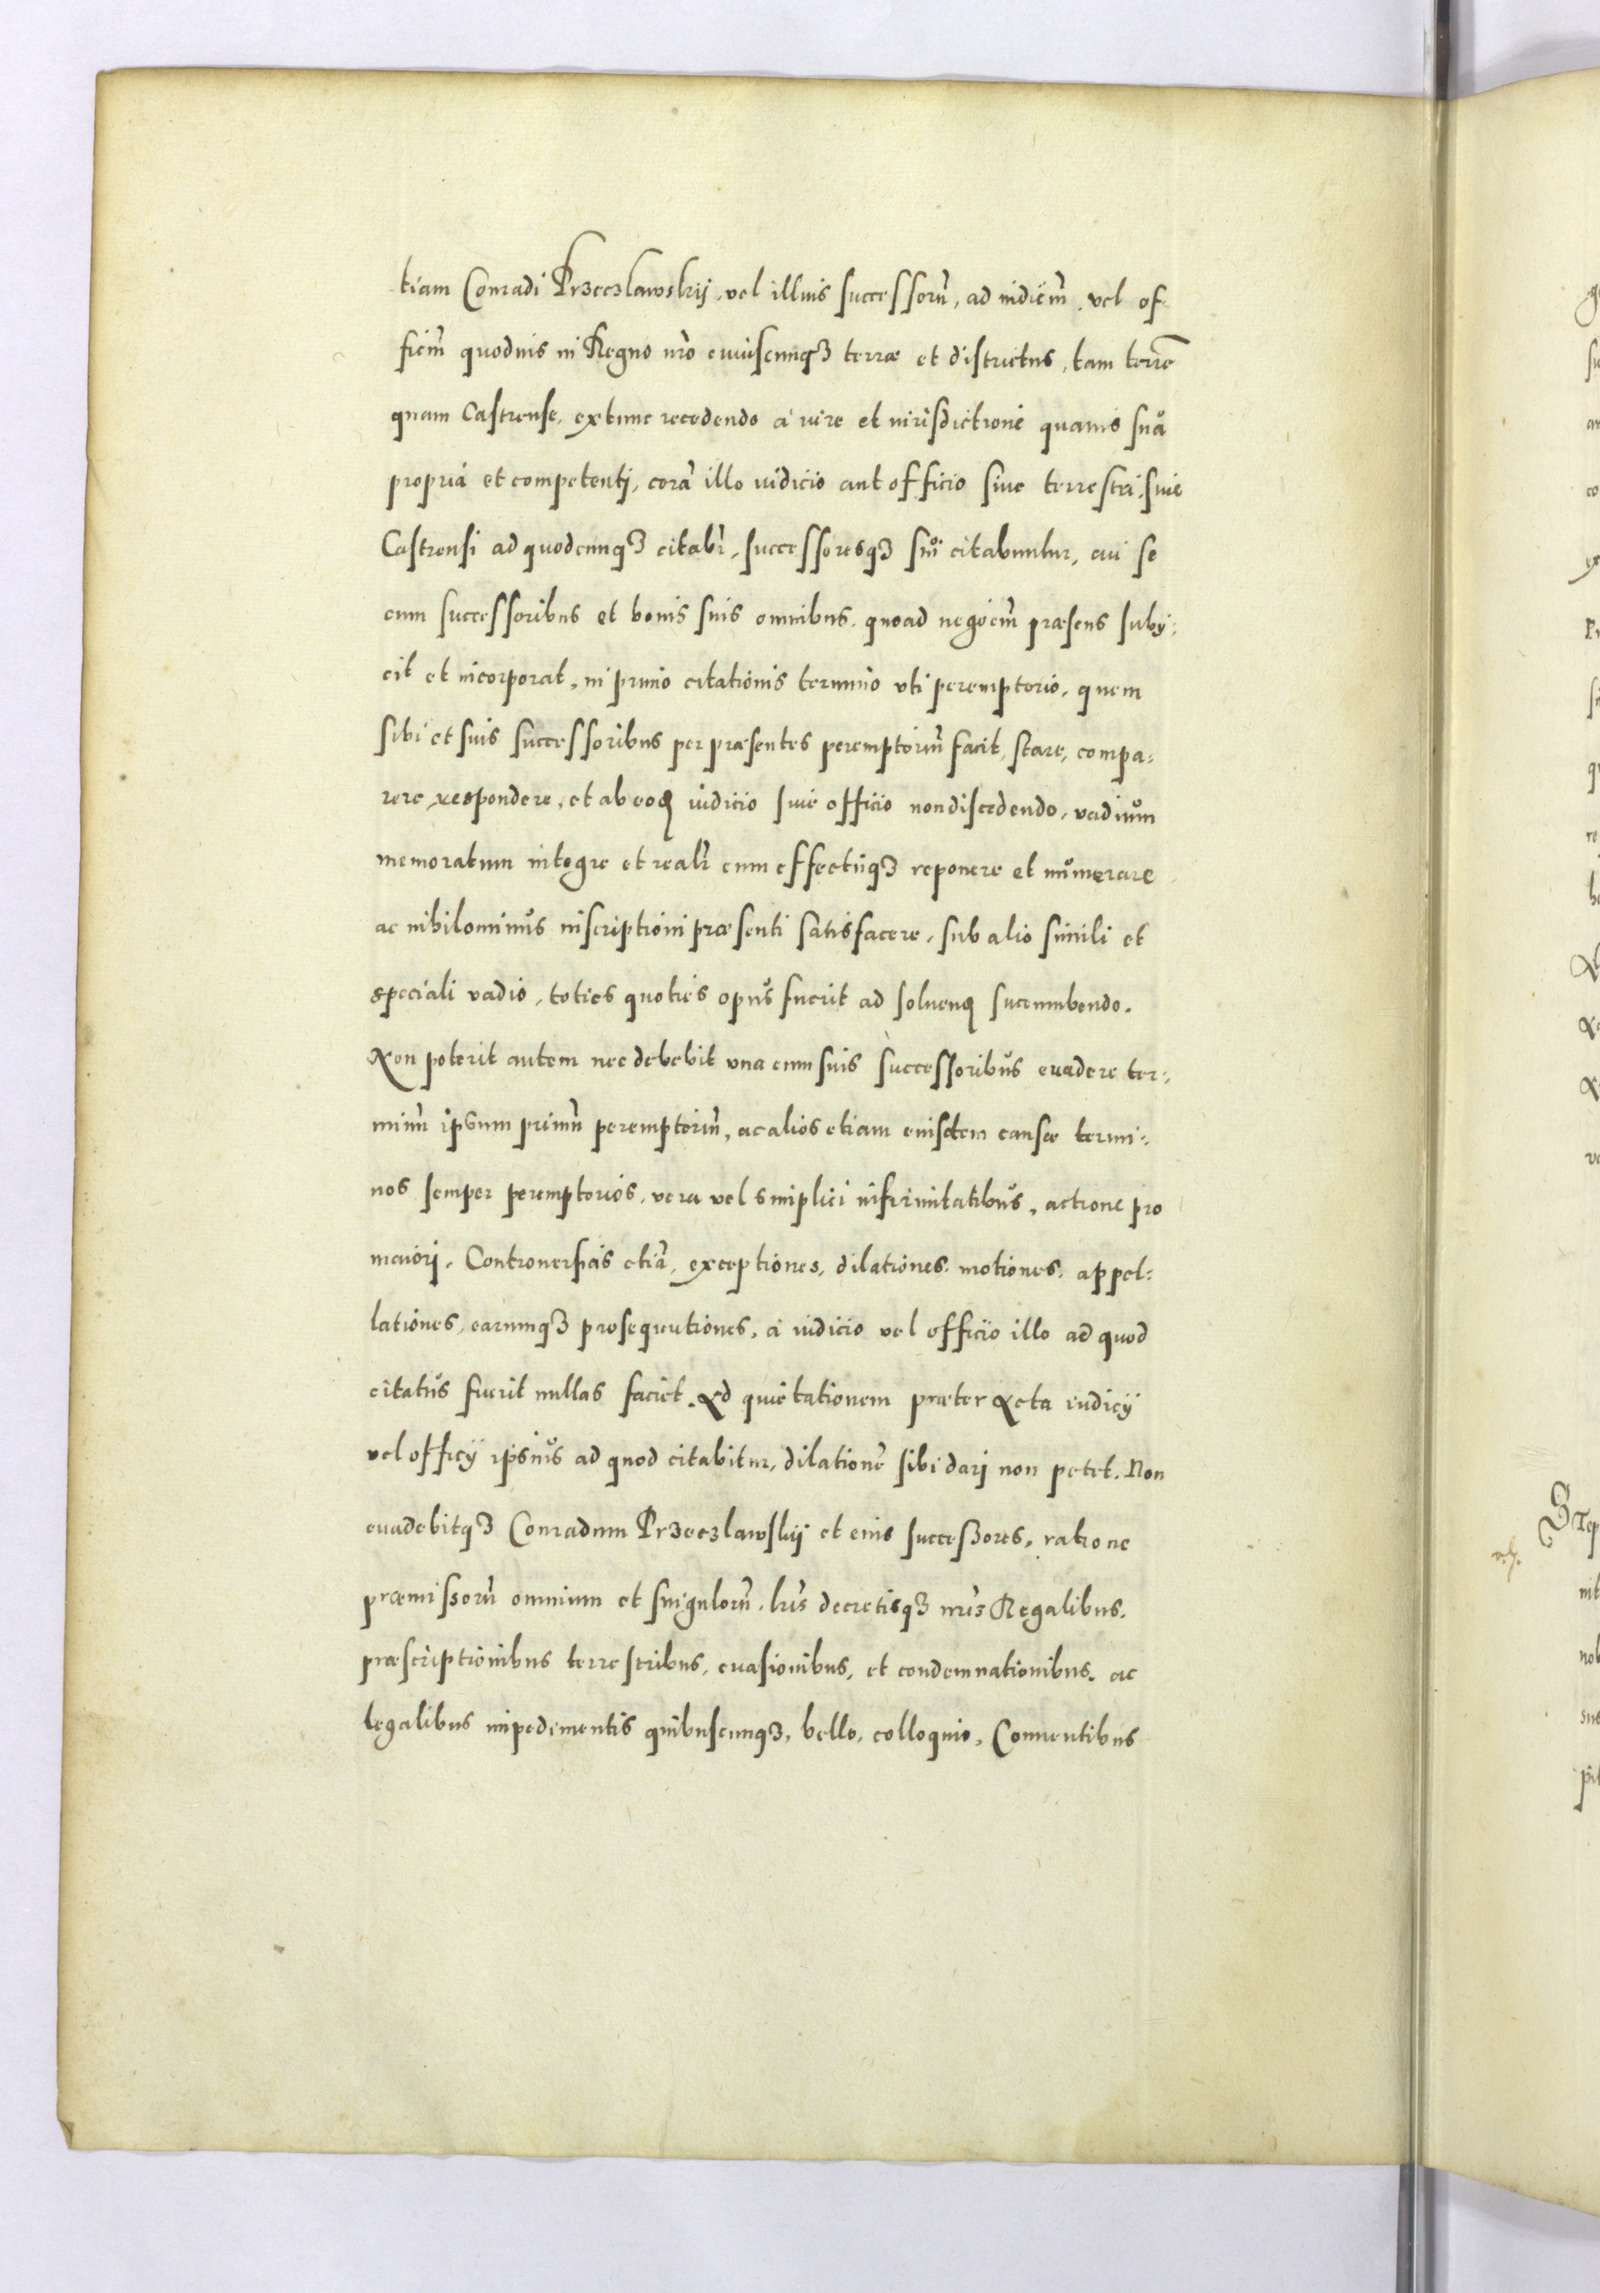 tiam Conradi Przeczlawskij, vel illius successorũ, ad iudiciũ, vel of-
ficiũ quoduis in Regno nr̃o cuiuscunqȝ terræ et districtus, tam terre̅
quam Castrense, extunc recedendo à iure et iurisdictione quauis suå
propria et competentj, corã illo iudicio aut officio siue terrestri siue
Castrensi ad quodcunqȝ citabr̃, successoresqȝ sui citabuntur, cui se
cum successoribus et bonis suis omnibus, quoad negociũ præsens subij:
cit et incorporat, in primo citationis termino vti peremptorio, quem
sibi et suis successoribus per præsentes peremptoriũ facit, stare, compa:
rere, respondere, et ab eoq̃ iudicio siue officio non discedendo, vadium
memoratum integre et realr̃ cum effectuqȝ reponere et numerare
ac nihilominus inscriptioni præsenti satisfacere, sub alio simili et
speciali vadio, toties quoties opus fuerit ad soluenq̃ succumbendo.
Non poterit autem nec debebit vna cum suis successoribus euadere ter:
minũ ipsum primũ peremptoriũ, ac alios etiam eiusdem causæ termi:
nos semper peremptorios, vera vel simplici infirmitatibus, actione pro
maiorj. Controuersias etiã, exceptiones, dilationes, motiones, appel:
lationes, earumqȝ prosequutiones, à iudicio vel officio illo ad quod
citatus fuerit nullas faciet. Ad quietationem præter Acta iudicij
vel officij ipsius ad quod citabitur, dilationẽ sibi darj non petet. Non
euadebitqȝ Conradum Przeczlawskij et eius successores, ratione
præmissorũ omnium et singulorũ, lr̃is decretisqȝ nr̃is Regalibus,
præscriptionibus terrestribus, euasionibus, et condemnationibus, ac
legalibus impedimentis quibuscunqȝ, bello, colloquio, Conuentibus